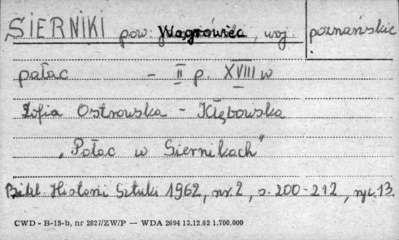 SIERNIKI pow. Wągrowiec, woj. poznańskie
pałac - II p. XVIII w
Zofia Ostrowska - Kłębowska
„Pałac w Siernikach"
Biul. Historii Sztuki 1962, nr. 2, s. 200-212, ryc. 13.
CWD - B-15-b, nr 2827/ZW/P — WDA 2694 13.12.62 1.700.000